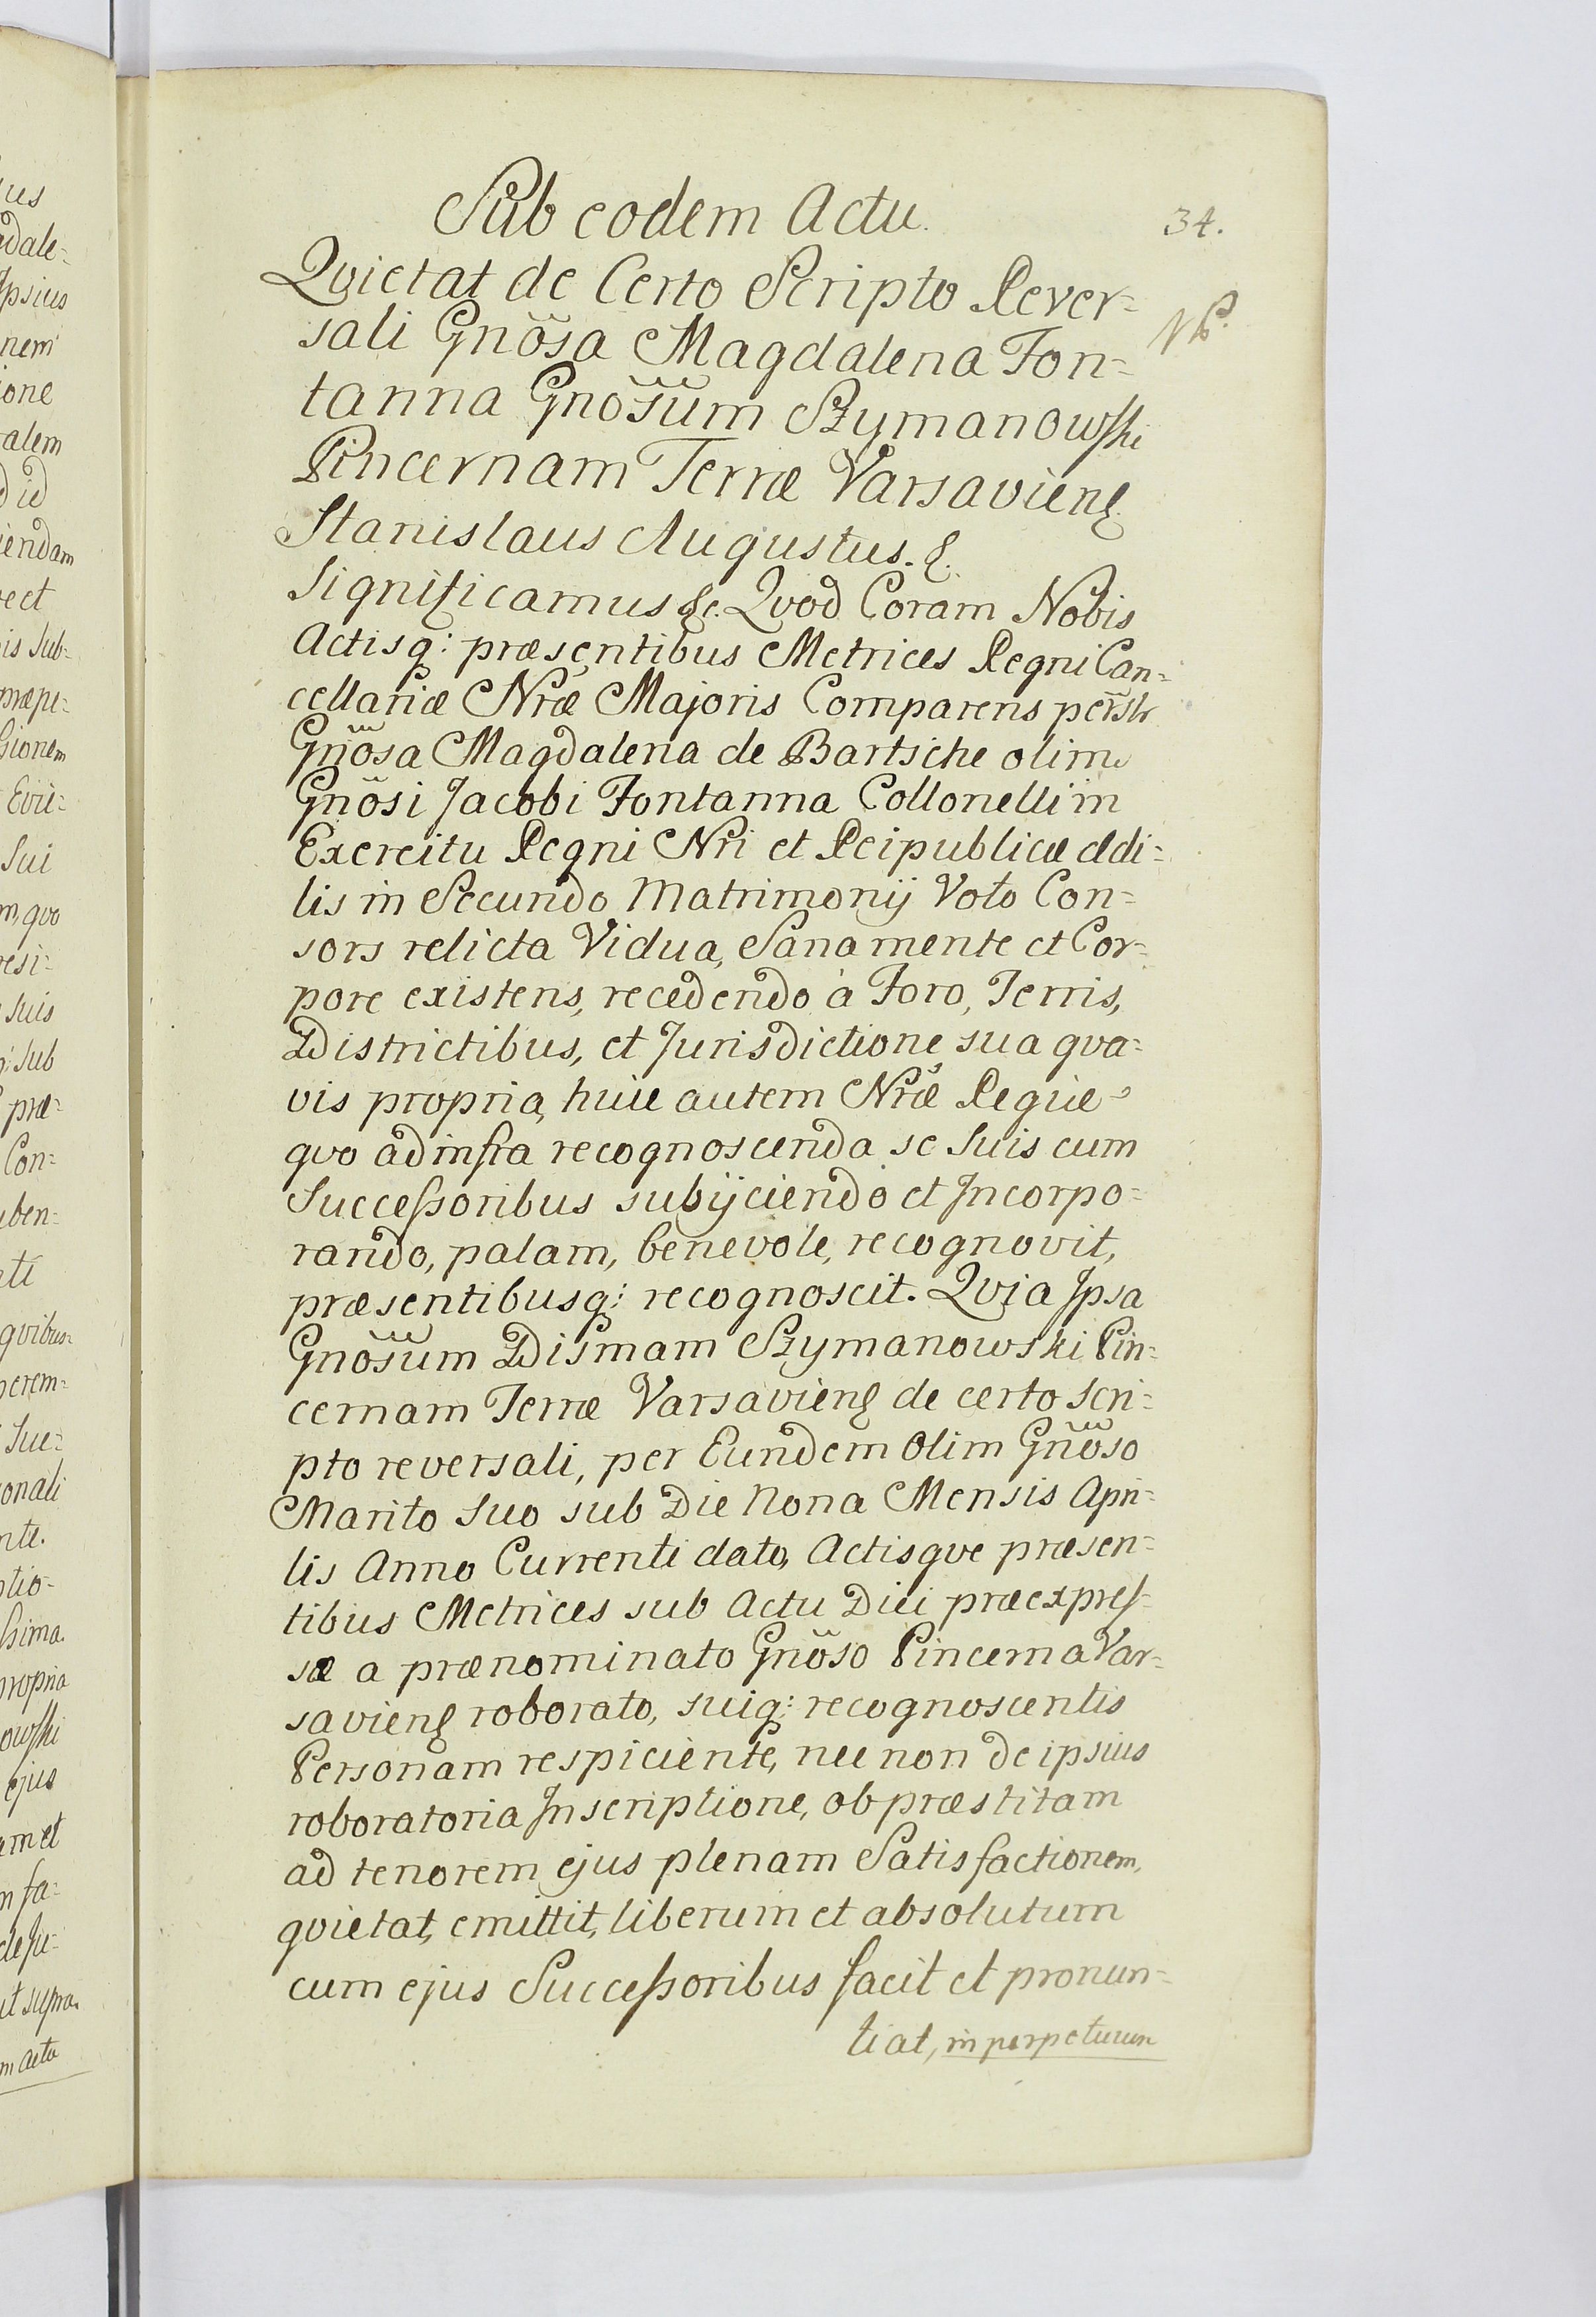 Sub eodem Actu.
34.
Qvietat de Certo Scripto Rever=
sali Gnosa Magdalena Fon=
tanna Gnosum Szymanowski
Pincernam Terræ Varsavien̄
Stanislaus Augustus. &.
Significamus &c. Qvod Coram Nobis
Actisq: præsentibus Metrices Regni Can=
cellariæ Nræ Majoris Comparens persłr
Gnosa Magdalena de Bartsche olim
Gnosi Jacobi Fontanna Collonelli in
Exercitu Regni Nri et Reipublicæ Ædi=
lis in Secundo Matrimonij Voto Con=
sors relicta Vidua, Sana mente et Cor=
pore existens, recedendo à Foro, Terris,
Districtibus, et Jurisdictione sua qva=
vis propria, huic autem Nræ Regiæ
qvo ad infra recognoscenda se Suis cum
Successoribus subijciendo et Incorpo=
rando, palam, benevole, recognovit,
præsentibusq: recognoscit. Qvia Ipsa
Gnosum Dismam Szymanowski Pin=
cernam Terræ Varsavien̄ de certo scri=
pto reversali, per Eundem Olim Gnoso
Marito Suo sub Die Nona Mensis Apri=
lis Anno Currenti dato, Actisqve præsen=
tibus Metrices sub Actu Diei præexpres=
sæ a prænominato Gnoso Pincerna Var=
savien̄ roborato, suiq: recognoscentis
Personam respiciente, nec non de ipsius
roboratoria Inscriptione, ob præstitam
ad tenorem ejus plenam Satisfactionem,
qvietat, emittit, liberum et absolutum
cum ejus Successoribus facit et pronun=
tiat, in perpetuum